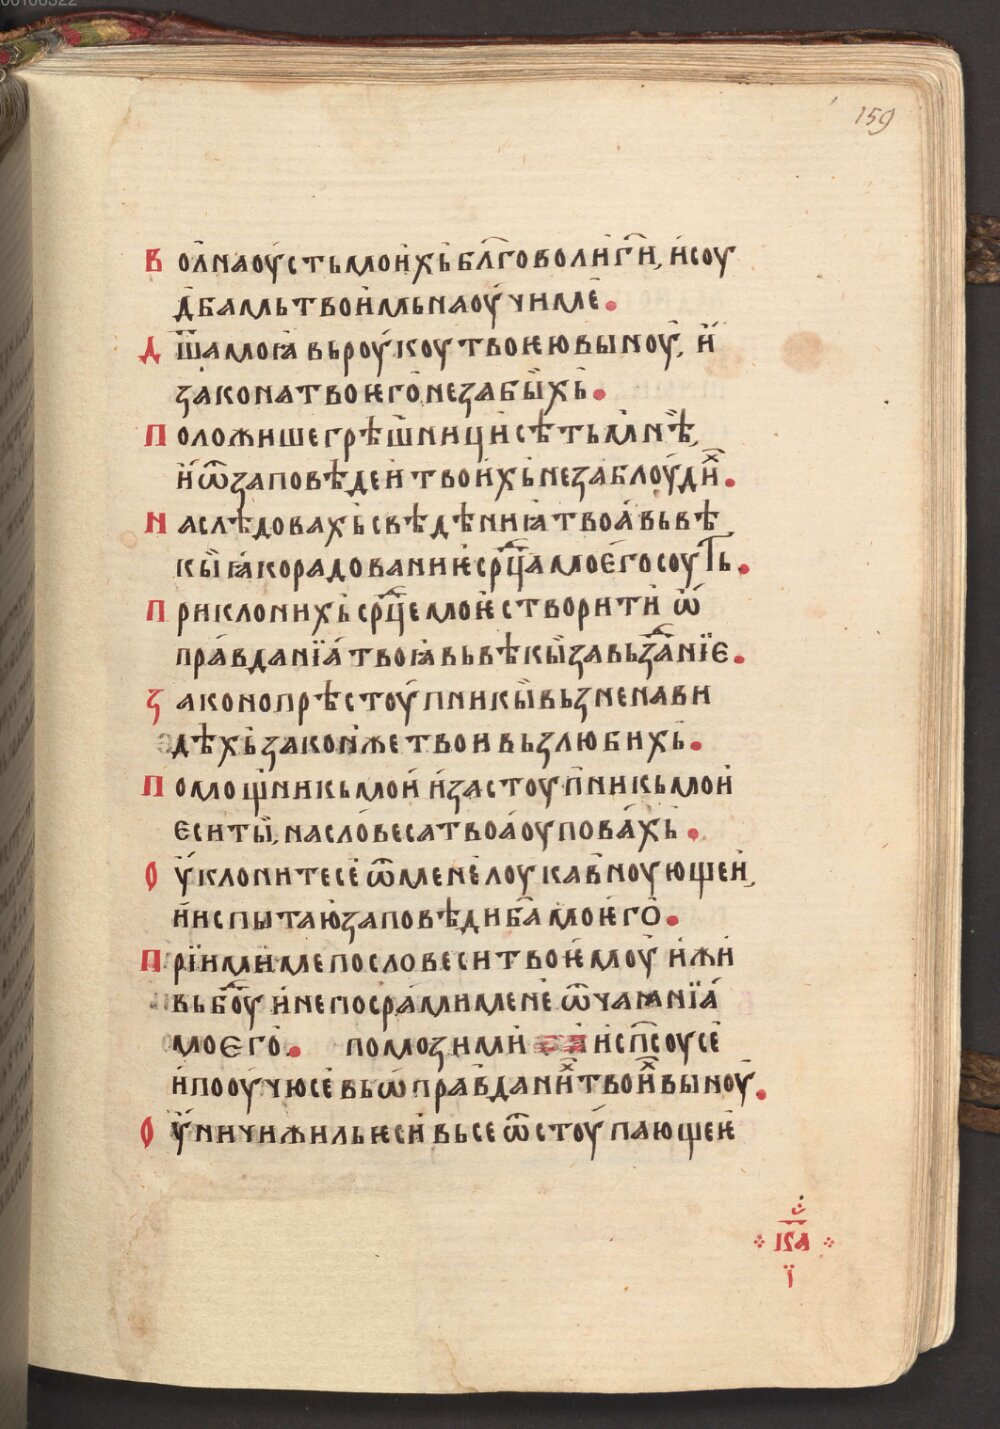 159
В олнаоу́стьмои́хь бл҃говоли ги҃, и́ соу
д́бамь твои́мь наоу́чи ме.
Д ш҃а моꙗ́ вь роу́коу твоѥю вы́ноу, и҆́
закона твоѥго̀ не забы́хь.
П оложише грѣшници сѣть мнѣ,
и҆́ ѿ заповѣдеи твои́хь не заблоу́дих.
Н аслѣдовахь свѣдѣниꙗ твоа́ вь вѣ
кы̀ ꙗ́ко радованиѥ ср҃ца моего̀ соуть.
П риклонихь ср҃це моѥ створити ѡ҆́
пра́вданїа́ твоꙗ́ вь вѣкы̀ за вьзда́нїе.
З аконопрѣстоу́пникы̀ вьзненави
дѣхь законже твои вьзлюбихь.
П омощникь мои́ и҆́ застоу́пникь мои
еси ты̀, на сло́веса твоа́ оупова́хь.
О у҆́клонитесе ѿ мене лоукавноующеи,
и҆́ испытаю заповѣди ба҃ моѥго̀.
П рїими ме по словеси твоѥмоу̀ и живи
вь боу҃ и не посра́ми мене ѿ чаꙗнїа́
моего̀. помози ми и сп҃соусе
и пооу́чюсе вь ѡ҆правданих твоих вы́ноу.
О у҆́ничижиль ѥси вьсе ѿстоу́пающеѥ